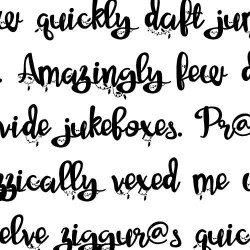 w quickly daft jum
. Amazingly few d
vide jukeboxes. Pr@
zzically vexed me w
elve ziggur@s quic